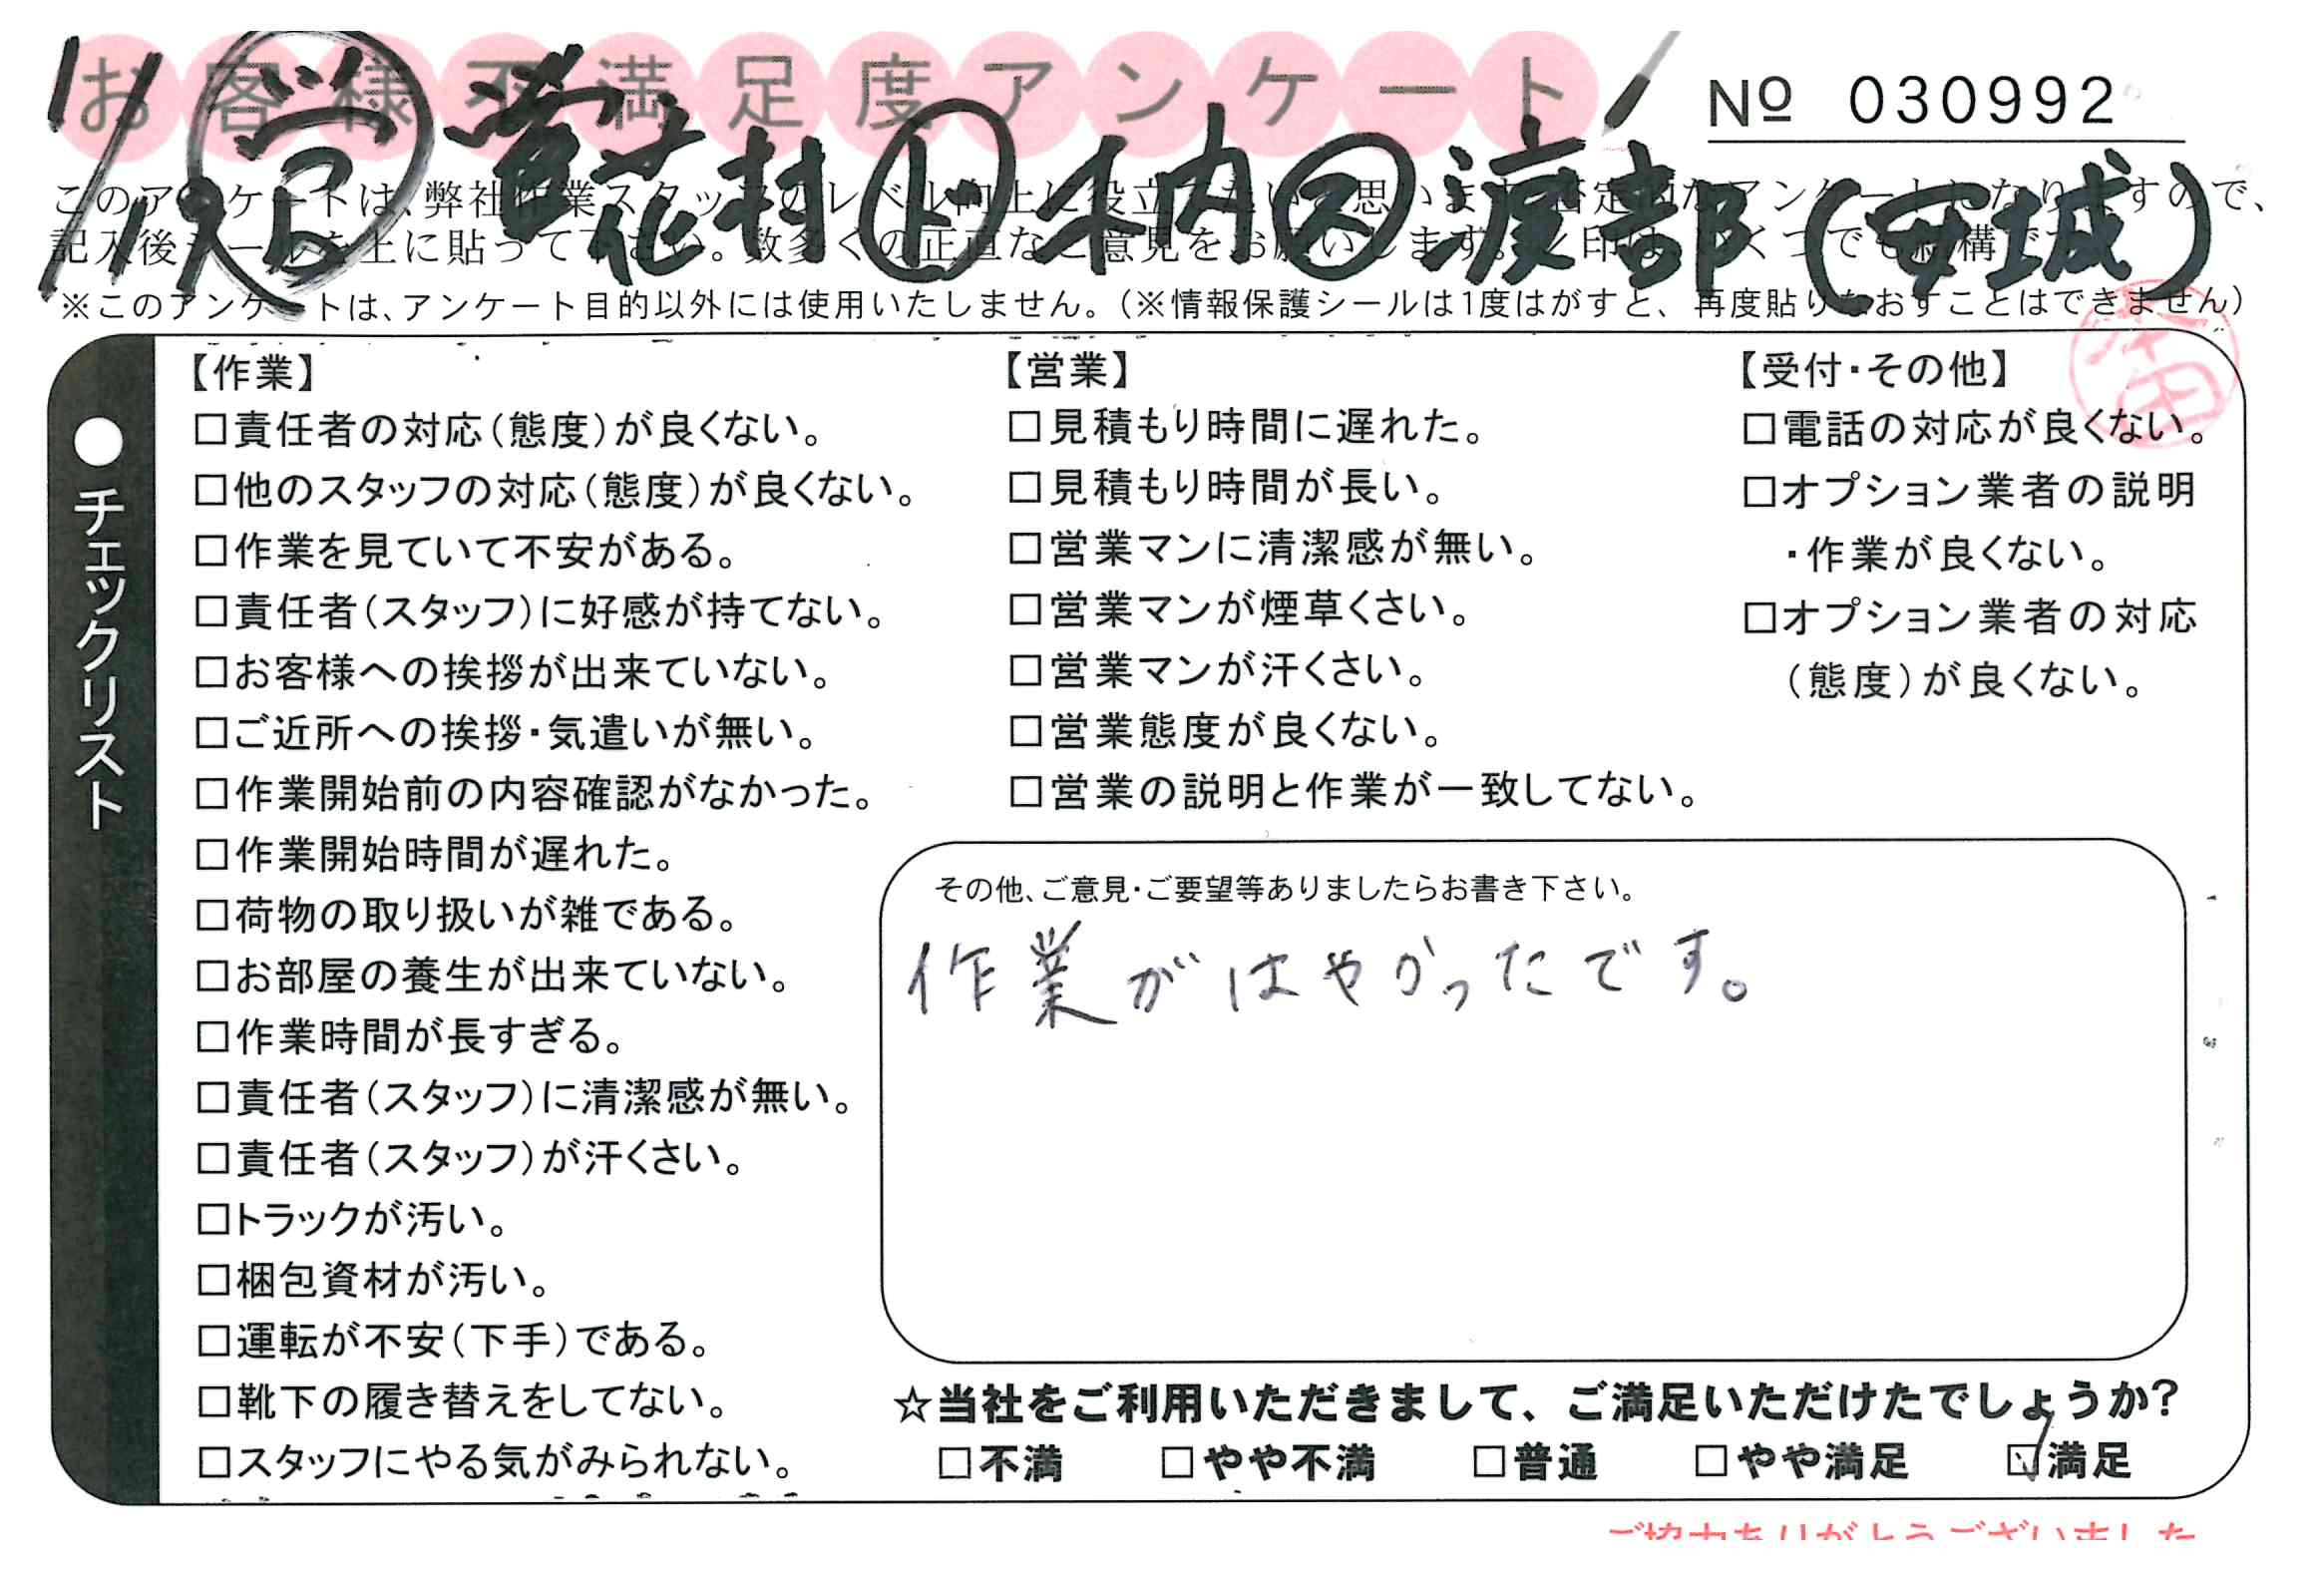 お客様不満足度アンケート
№ 030992
このアンケートは、弊社作業スタッフのレベル向上に役立てたいと思います。否定的なアンケートになりますので、
記入後シールを上に貼って下さい。数多くの正直なご意見をお願いします。レ印はいくつでも結構です。
※このアンケートは、アンケート目的以外には使用いたしません。（※情報保護シールは1度はがすと、再度貼りなおすことはできません）
1/12 営 菅 花村 ド 木内 ス 渡部 (安城)
本田
●チェックリスト
【作業】
□責任者の対応（態度）が良くない。
□他のスタッフの対応（態度）が良くない。
□作業を見ていて不安がある。
□責任者（スタッフ）に好感が持てない。
□お客様への挨拶が出来ていない。
□ご近所への挨拶・気遣いが無い。
□作業開始前の内容確認がなかった。
□作業開始時間が遅れた。
□荷物の取り扱いが雑である。
□お部屋の養生が出来ていない。
□作業時間が長すぎる。
□責任者（スタッフ）に清潔感が無い。
□責任者（スタッフ）が汗くさい。
□トラックが汚い。
□梱包資材が汚い。
□運転が不安（下手）である。
□靴下の履き替えをしてない。
□スタッフにやる気がみられない。
【営業】
□見積もり時間に遅れた。
□見積もり時間が長い。
□営業マンに清潔感が無い。
□営業マンが煙草くさい。
□営業マンが汗くさい。
□営業態度が良くない。
□営業の説明と作業が一致してない。
【受付・その他】
□電話の対応が良くない。
□オプション業者の説明
・作業が良くない。
□オプション業者の対応
（態度）が良くない。
その他、ご意見・ご要望等ありましたらお書き下さい。
作業がはやかったです。
☆当社をご利用いただきまして、ご満足いただけたでしょうか?
□不満 □やや不満 □普通 □やや満足 ☑満足
ご協力ありがとうございました